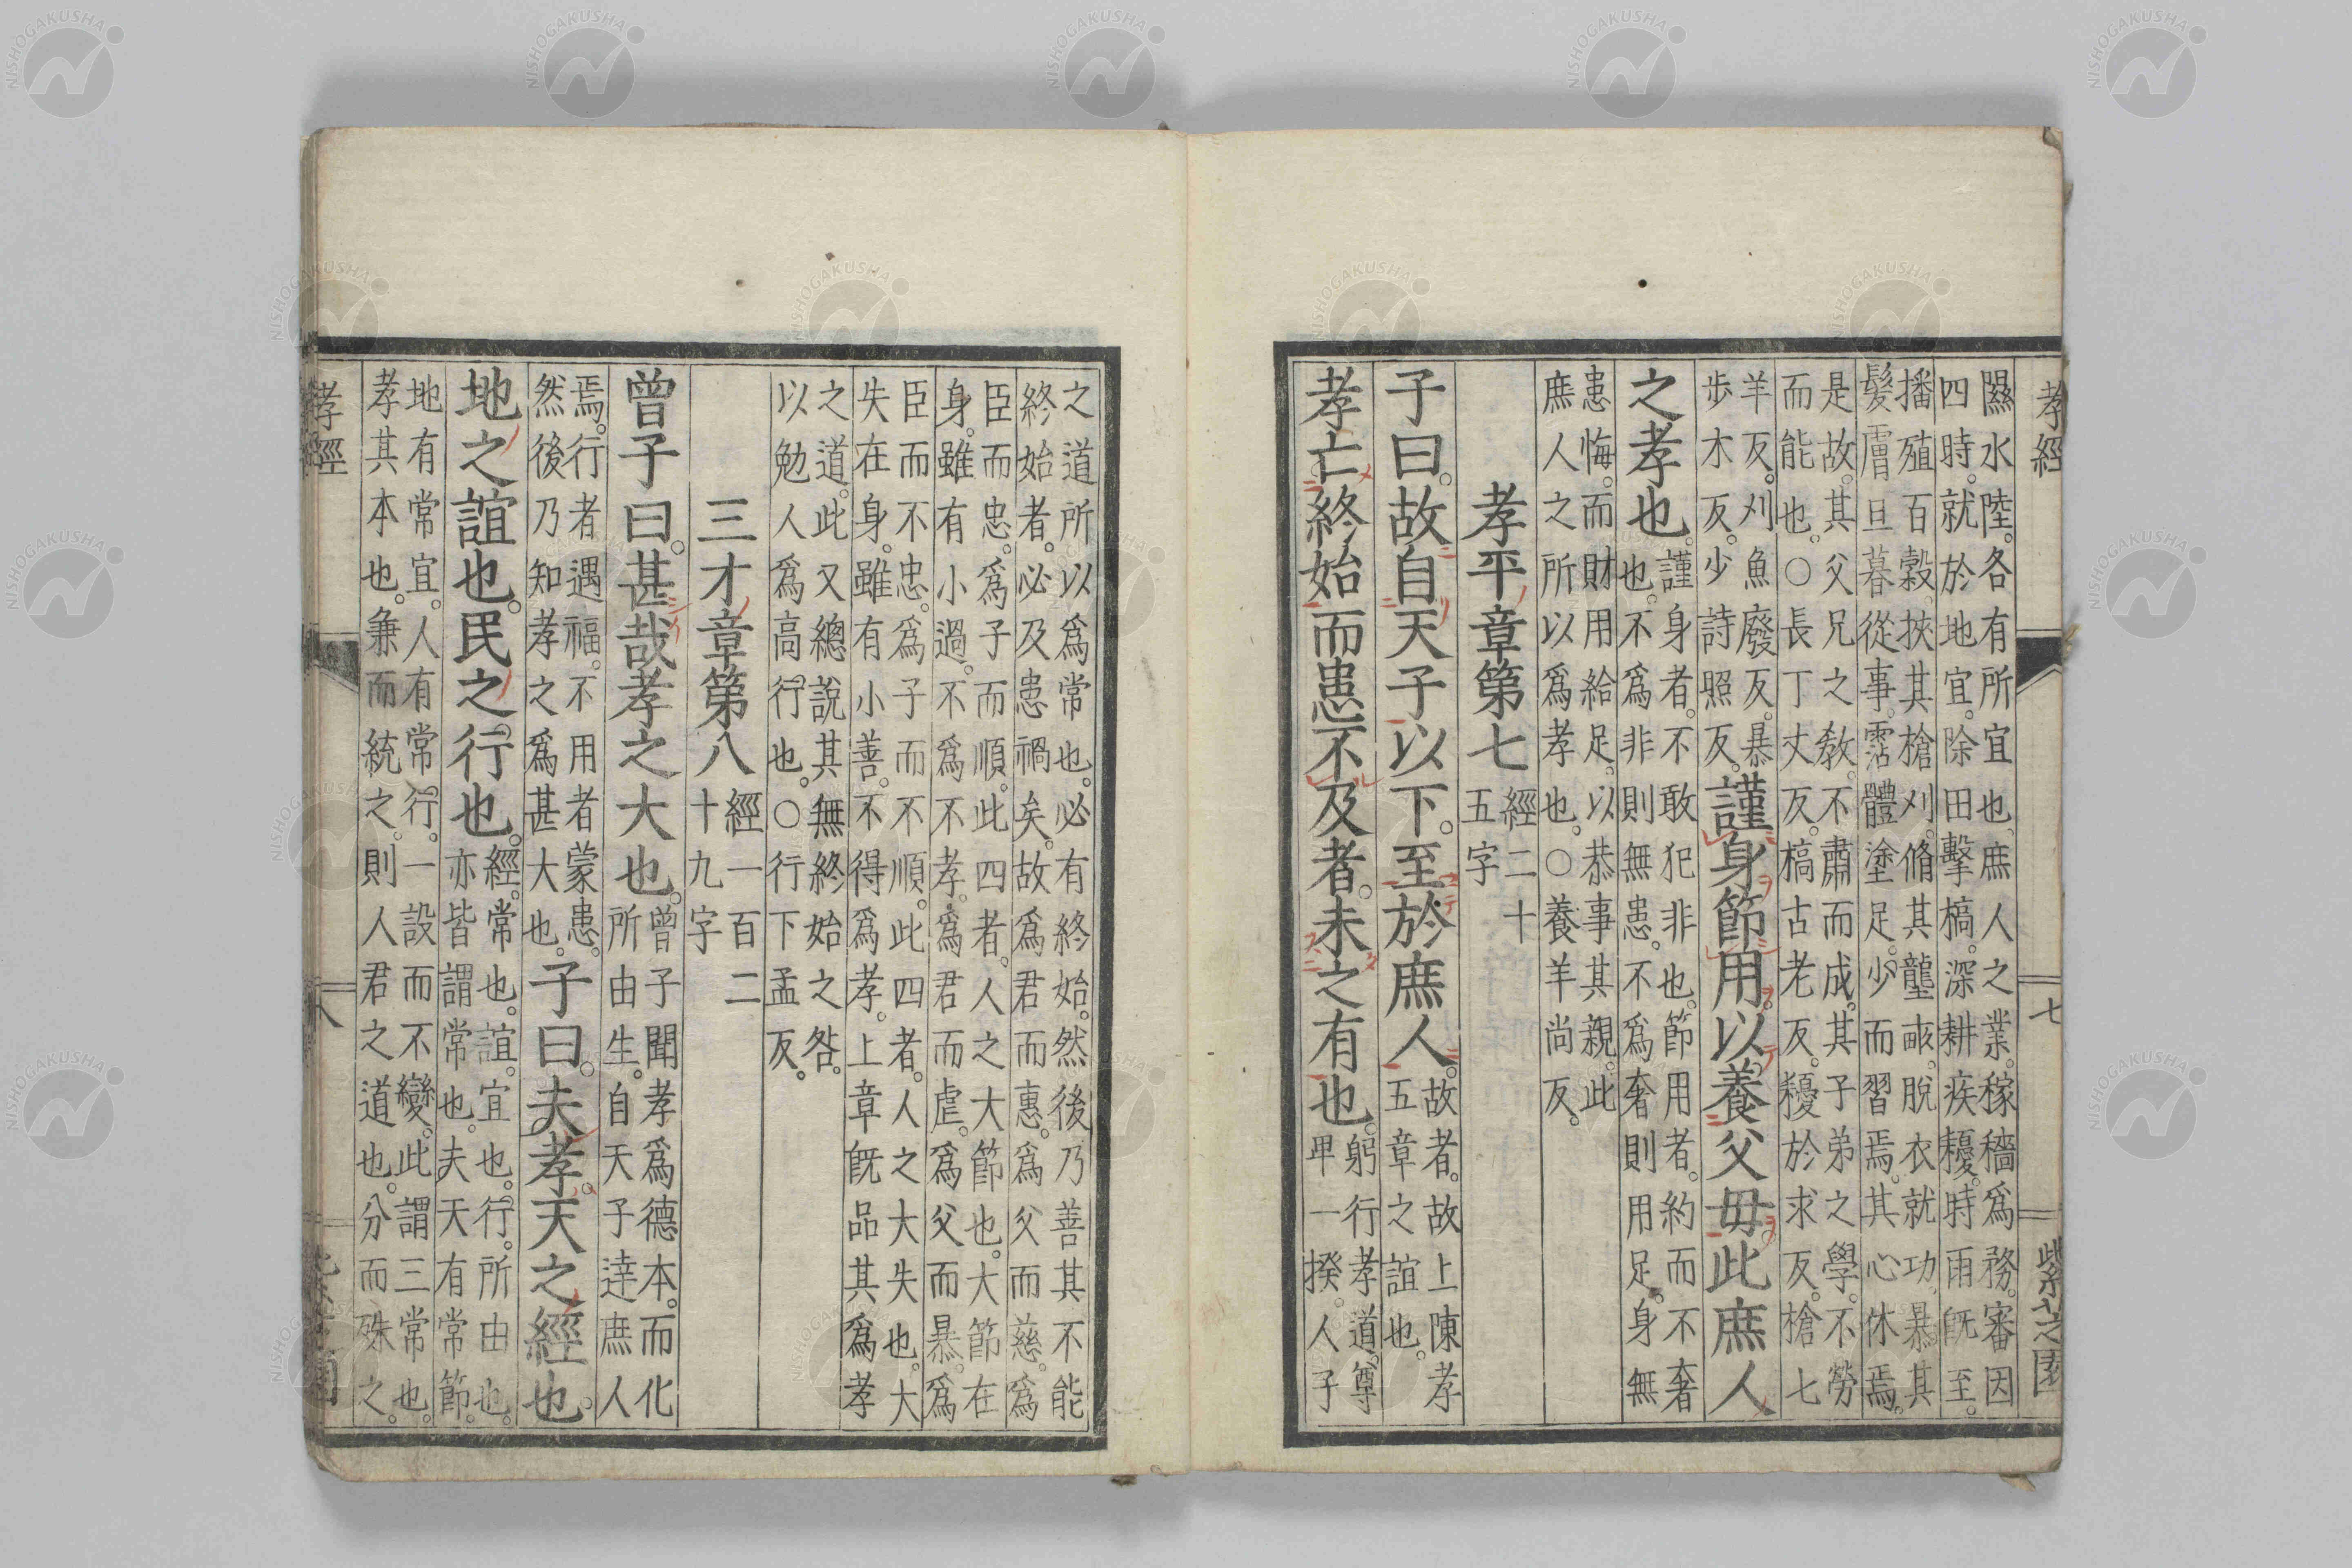 孝經
七
紫芝園
隰水陸各有所宜也庶人之業稼穡爲務審因
四時就於地宜除田擊槁深耕疾耰時雨旣至
播殖百穀挾其槍刈脩其壟畝脫衣就功暴其
髮膚旦暮從事霑體塗足少而習焉其心休焉
是故其父兄之敎不肅而成其子弟之學不勞
而能也○長丁丈反槁古老反耰於求反槍七
羊反刈魚廢反暴
步木反少詩照反
謹身節用以養父母此庶人
之孝也
謹身者不敢犯非也節用者約而不奢
也不爲非則無患不爲奢則用足身無
患悔而財用給足以恭事其親此
庶人之所以爲孝也○養羊尚反
孝平章第七
經二十
五字
子曰故自天子以下至於庶人
故者故上陳孝
五章之誼也
孝亡終始而患不及者未之有也
躬行孝道尊
卑一揆人子
之道所以爲常也必有終始然後乃善其不能
終始者必及患禍矣故爲君而惠爲父而慈爲
臣而忠爲子而順此四者人之大節也大節在
身雖有小過不爲不孝爲君而虐爲父而暴爲
臣而不忠爲子而不順此四者人之大失也大
失在身雖有小善不得爲孝上章旣品其爲孝
之道此又總說其無終始之咎
以勉人爲高行也○行下孟反
三才章第八
經一百二
十九字
曾子曰甚哉孝之大也
曾子聞孝爲德本而化
所由生自天子達庶人
焉行者遇福不用者蒙患
然後乃知孝之爲甚大也
子曰夫孝天之經也
地之誼也民之行也
經常也誼宜也行所由也
亦皆謂常也夫天有常節
地有常宜人有常行一設而不變此謂三常也
孝其本也兼而統之則人君之道也分而殊之
孝經
八